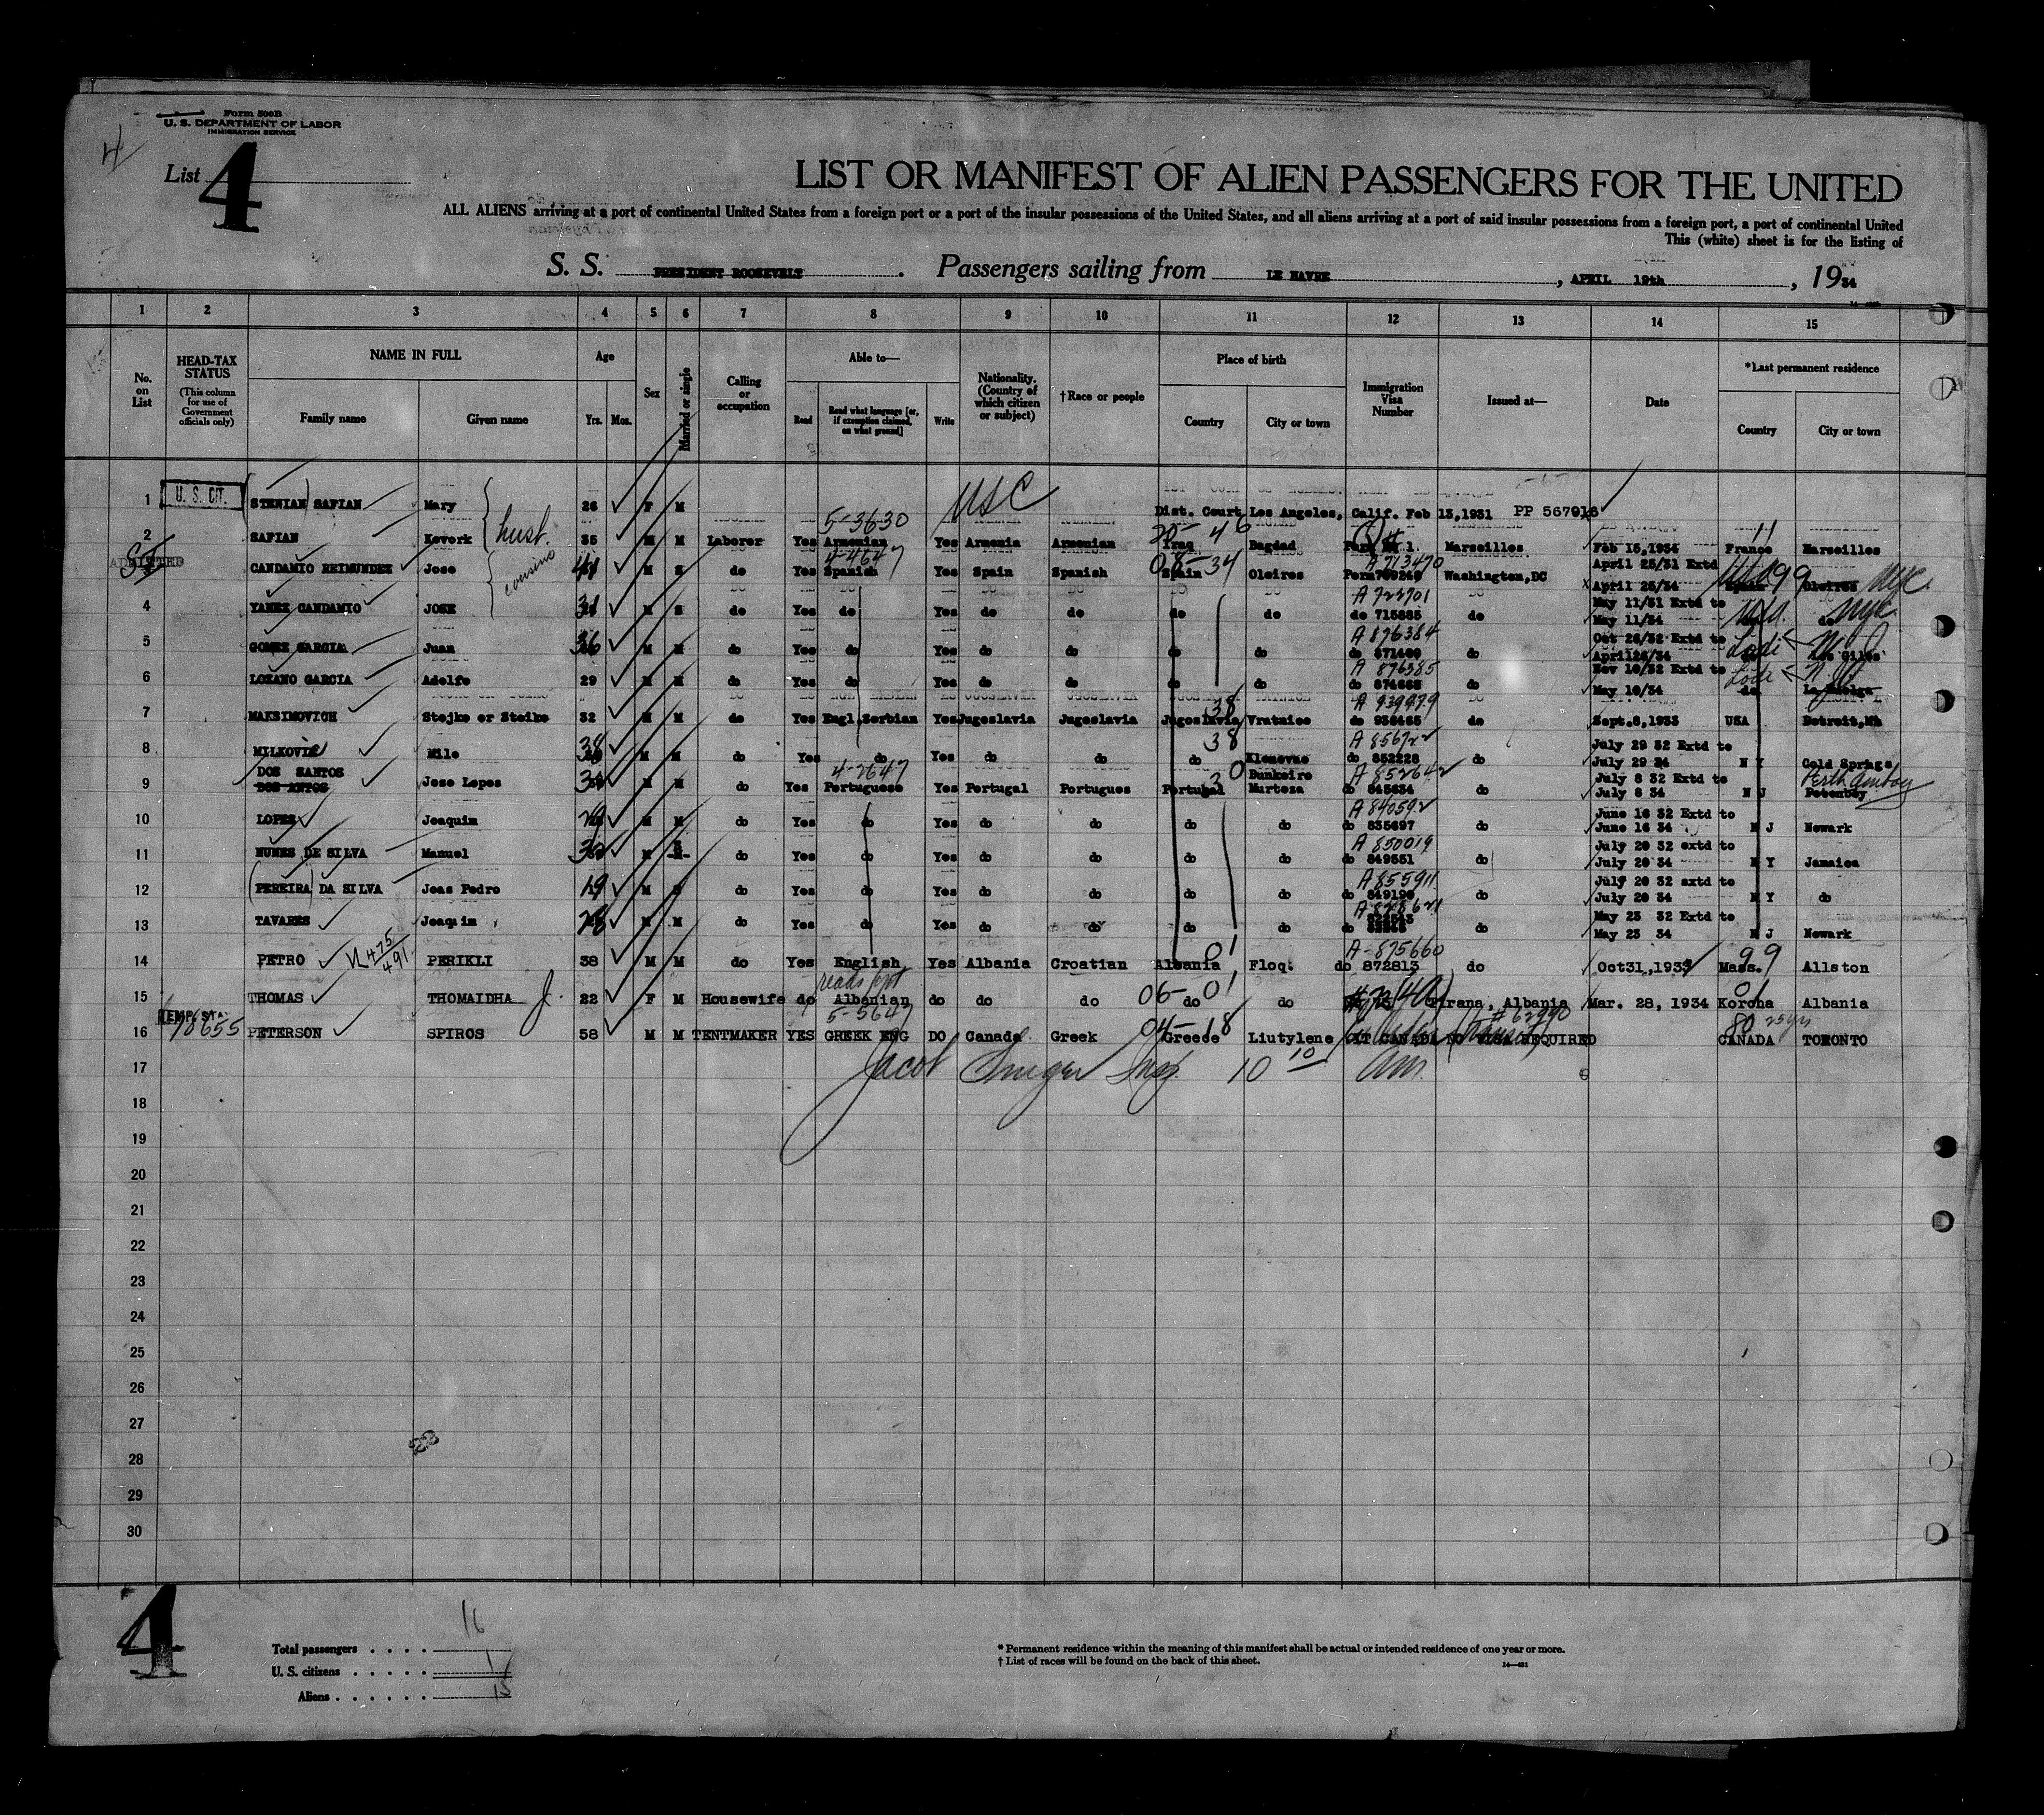 Form 500B
U. S. DEPARTMENT OF LABOR
IMMIGRATION SERVICE
4
List 4
LIST OR MANIFEST OF ALIEN PASSENGERS FOR THE UNITED
ALL ALIENS arriving at a port of continental United States from a foreign port or a port of the insular possessions of the United States, and all aliens arriving at a port of said insular possessions from a foreign port, a port of continental United
This (white) sheet is for the listing of
S. S. PRESIDENT ROOSEVELT . Passengers sailing from LE HAVRE , APRIL 19th , 1934
1 2 3 4 5 6 7 8 9 10 11 12 13 14 15
No. on List
HEAD-TAX STATUS
(This column for use of Government officials only)
NAME IN FULL
Family name
Given name
Age
Yrs.
Mos.
Sex
Married or single
Calling or occupation
Able to—
Read
Read what language [or, if exemption claimed, on what ground]
Write
Nationality. (Country of which citizen or subject)
†Race or people
Place of birth
Country
City or town
Immigration Visa Number
Issued at—
Date
*Last permanent residence
Country
City or town
1 U. S. CIT. (STENIAN) SAFIAN Mary 26 F M USC Dist. Court Los Angeles, Calif. Feb 13,1931 PP 567916
5-3630
2 SAFIAN Kevork husb. 35 M M Laborer Yes Armenian Yes Armenia Armenian Iraq Bagdad Marseilles Feb 15,1934 France Marseilles
ADMITTED
4-4647 08-34 A 713470 April 25/31 Extd
CANDAMIO REIMUNDEZ Jose cousins M S do Yes Spanish Yes Spain Spanish Spain Oleiros Washington,DC April 25/34 99 Oleiros NYC.
A 727701 May 11/31 Extd to
4 YANEZ CANDAMIO JOSE M S do Yes do Yes do do do do do 715885 do May 11/34 do NYC
A 876384 Oct 26/32 Extd to
5 GOMEZ GARCIA Juan 36 M M do Yes do Yes do do do do do 871400 do April 26/34 Lodi N J
A 876385 Nov 10/32 Extd to
6 LOZANO GARCIA Adolfo 29 M M do Yes do Yes do do do do do do May 10/34 Lodi N J
38 A 939979
7 MAKSIMOVICH Stojko or Stoiko 32 M M do Yes Engl.Serbian Yes Jugoslavia Jugoslavia Jugoslavia Vratnice do 936465 do Sept.8,1933 USA Detroit,Mh
38 A 856722 July 29 32 Extd to
8 MILKOVIC Mile 38 M M do Yes do Yes do do do Klenovac do 852228 do July 29 34 N Y Cold Springs
DOS SANTOS 4-2647 Bunheiro A 852642 July 8 32 Extd to Perth Amboy
9 DOS ANTOS Jose Lopes M M do Yes Portuguese Yes Portugal Portugues Portugal Murtoza do 845634 do July 8 34 N J
A 840592 June 16 32 Extd to
10 LOPES Joaquim M M do Yes do Yes do do do do do 835697 do June 16 34 N J Newark
A 850019 July 20 32 extd to
11 NUNES DE SILVA Manuel M S do Yes do Yes do do do do do 849551 do July 20 34 N Y Jamaica
A 855911 July 20 32 extd to
12 (PEREIRA) DA SILVA Joas Pedro 19 M S do Yes do Yes do do do do do 849190 do July 20 34 N Y do
A 828621 May 23 32 Extd to
13 TAVARES Joaquim 28 M M do Yes do Yes do do do do do do May 23 34 N J Newark
475/491 01 A-875660
14 PETRO PERIKLI 38 M M do Yes English Yes Albania Croatian Albania Floq. do 872813 do Oct31,1933 Mass. 99 Allston
15 THOMAS THOMAIDHA J. 22 F M Housewife do Albanian do do do 06-01 do do Tirana, Albania Mar. 28, 1934 Korcha Albania
5-5647 #62990 80
16 PETERSON SPIROS 58 M M TENTMAKER YES GREEK ENG DO Canada Greek 04-18 Greece Liutylene CIT CANADA NO VISA REQUIRED CANADA TORONTO
17 Jacob Insp. 10 10 am.
18
19
20
21
22
23
24
25
26
27
28
29
30
4
Total passengers . . . . 16
U. S. citizens . . . . . 1
Aliens . . . . . . 15
* Permanent residence within the meaning of this manifest shall be actual or intended residence of one year or more.
† List of races will be found on the back of this sheet.